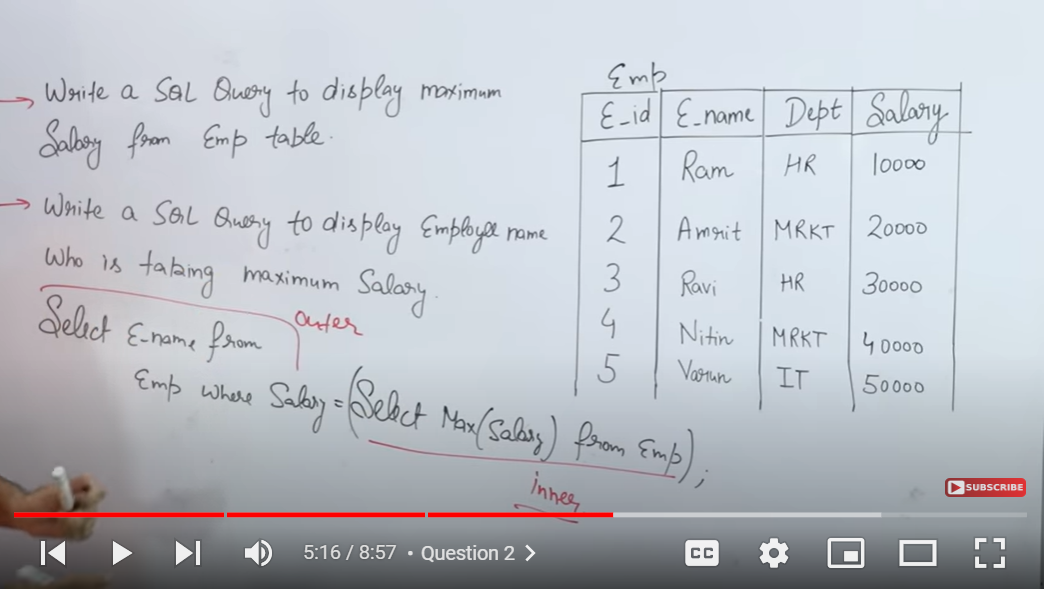 → Write a SQL Query to display maximum
Salary from Emp table.
→ Write a SQL Query to display Employee name
Who is taking maximum Salary.
Select E-name from
outer
Emp where Salary = (Select Max(Salary) from Emp);
inner
Emp
E-id E-name Dept Salary
1 Ram HR 10000
2 Amrit MRKT 20000
3 Ravi HR 30000
4 Nitin MRKT 40000
5 Varun IT 50000
SUBSCRIBE
5:16 / 8:57 • Question 2 >
CC